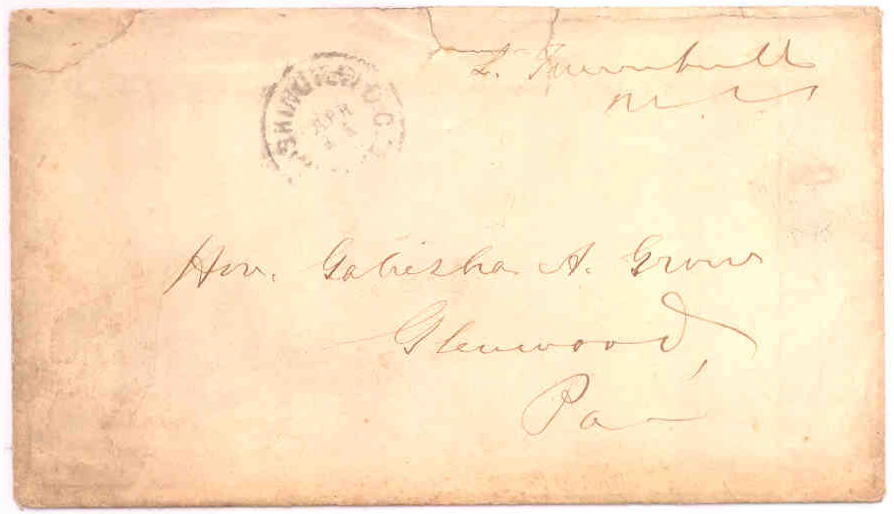 L. Trumbull
WASHINGTON D.C.
APR
Hon. Galusha A. Grow
Glenwood,
Pa